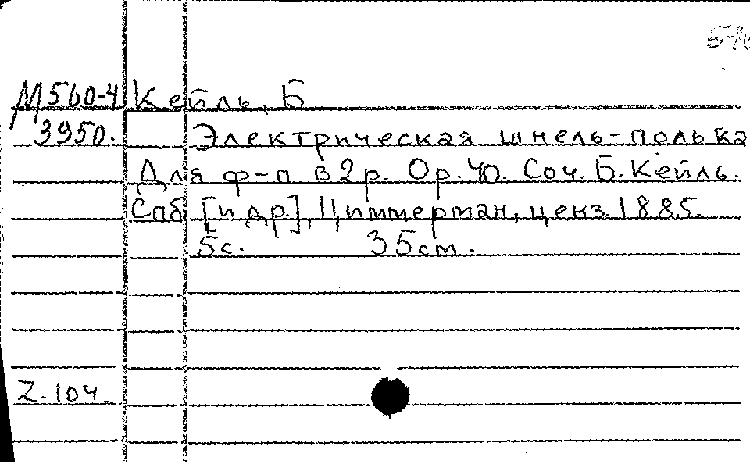 М560-4 Кейль, Б
3950. Электрическая шнель-полька
Для ф-п в 2 р. Ор. 40. Соч. Б. Кейль.
Спб [и др], Циммерман, ценз. 1885.
5 с. 35 см.
Z-104